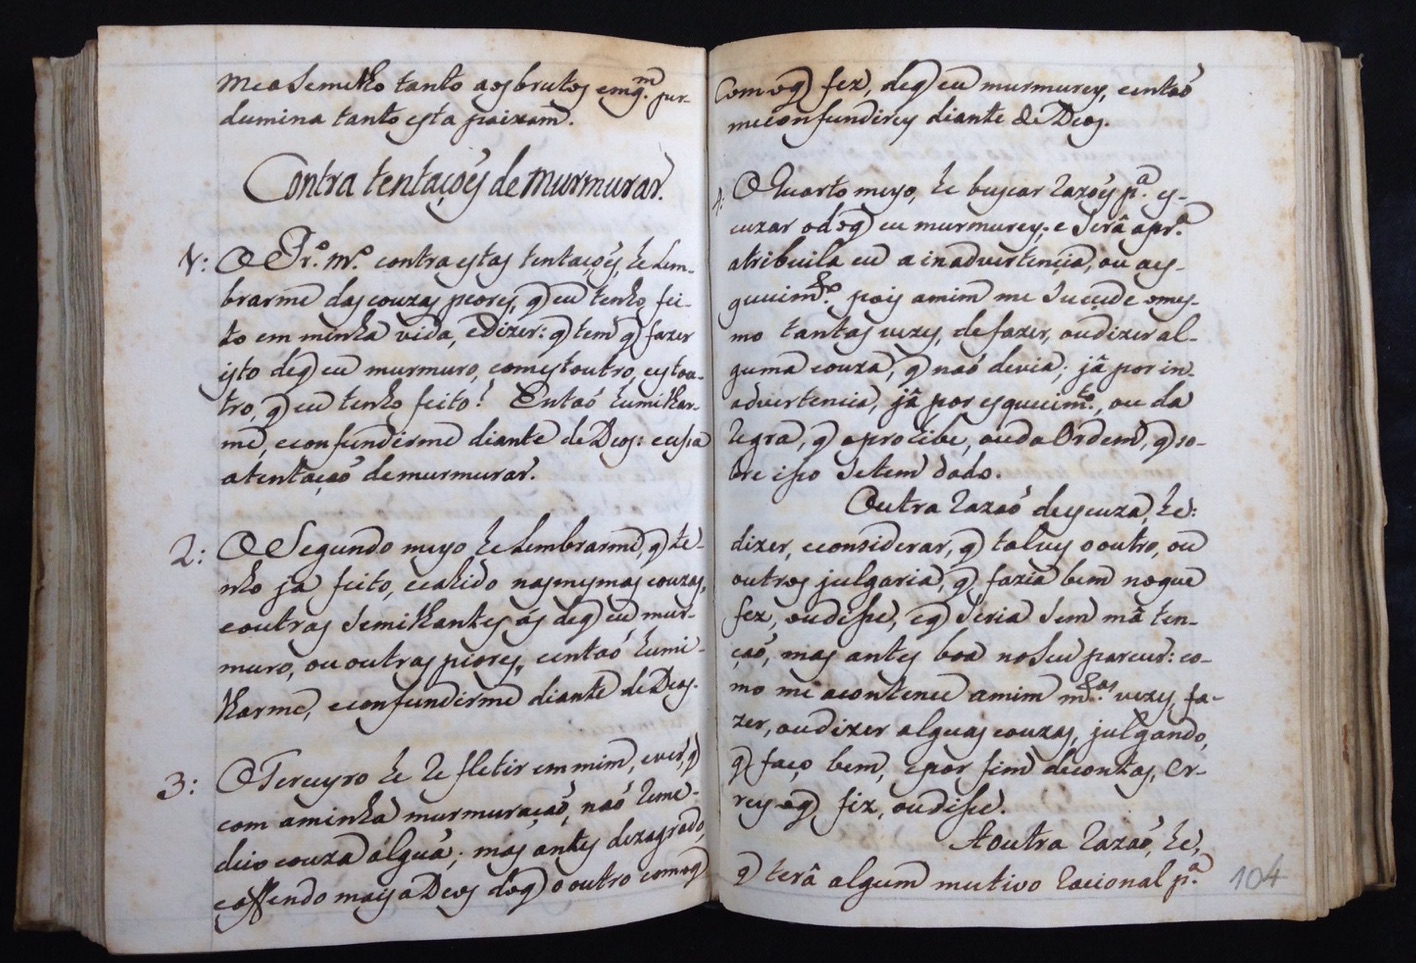 me asemelho tanto aos brutos emq.^m per-
dumina tanto esta paixam.
Contra tentaçoẽs de murmurar.
1: O Pr.º m.º contra estas tentaçoẽs, he Lem-
brarme das couzas peores, q̃ eu tenho fei-
to em minha vida, e dizer: q̃ tem q̃ fazer
isto de q̃ eu murmuro, com estoutro, e estou-
tro, q̃ eu tenho feito! Entaõ humilhar-
me, e confundirme diante de Deos: cessa
a tentaçaõ de murmurar.
2: O Segundo meyo he Lembrarme, q̃ te-
nho ja feito, e cahido nas mesmas couzas,
e outras semilhantes ás de q̃ eu mur-
muro, ou outras piores, e entaõ humi-
lharme, e confundirme diante de Deos.
3: O Terceyro he refletir em mim, e ver, q̃
com a minha murmuraçaõ, naõ reme-
deio couza algũa; mas antes dezagrado,
e offendo mais a Deos do q̃ o outro com o q̃
Com o q̃ fez, de q̃ eu murmurey, e entaõ
me confundirey diante de Deos.
4: O Quarto meyo, he buscar razoẽs p.ª es-
cuzar o de q̃ eu murmurey; e serâ a pr.ª
atribuila eu a inadvertencia, ou aes-
quecim.^to, pois amim me sucede o mes-
mo tantas vezes, de fazer, ou dizer al-
guma couza, q̃ naõ devia; jâ por in-
advertencia, jâ por esquecim.^to, ou da
regra, q̃ o procibe, ou da Ordem, q̃ so-
bre isso se tem dado.
Outra razaõ de escuza, he:
dizer, e considerar, q̃ talves o outro, ou
outros julgaria, q̃ fazia bem no que
fez, ou disse, e q̃ seria sem mâ ten-
çaõ, mas antes boa no seu parecer: co-
mo me acontece amim m.^tas vezes, fa-
zer, ou dizer algũas couzas, julgando,
q̃ faço bem, e por fim de contas, er-
rey o q̃ fiz, ou disse.
A outra razaõ, he,
q̃ terâ algum mutivo racional p.ª
104